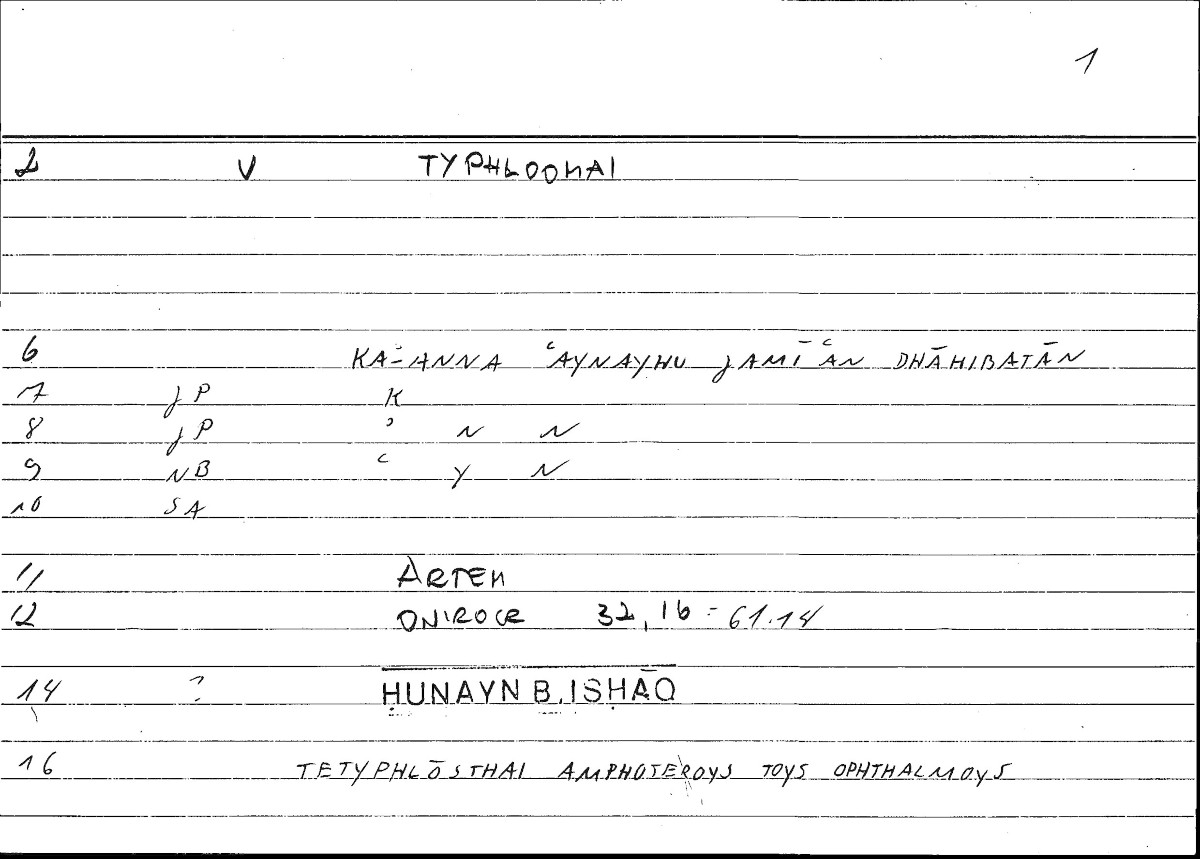 1
2 V TYPHLOOMAI
6 KA-ʾANNA ʿAYNAYHU JAMĪʿĀN DHĀHIBATĀN
7 JP K
8 JP ʾ N N
9 NB ʿ Y N
10 SA
11 ARTEM
12 ONIROCR 32,16 = 61.14
14 ? ḤUNAYN B. ISḤĀQ
16 TETYPHLŌSTHAI AMPHOTEROYS TOYS OPHTHALMOYS